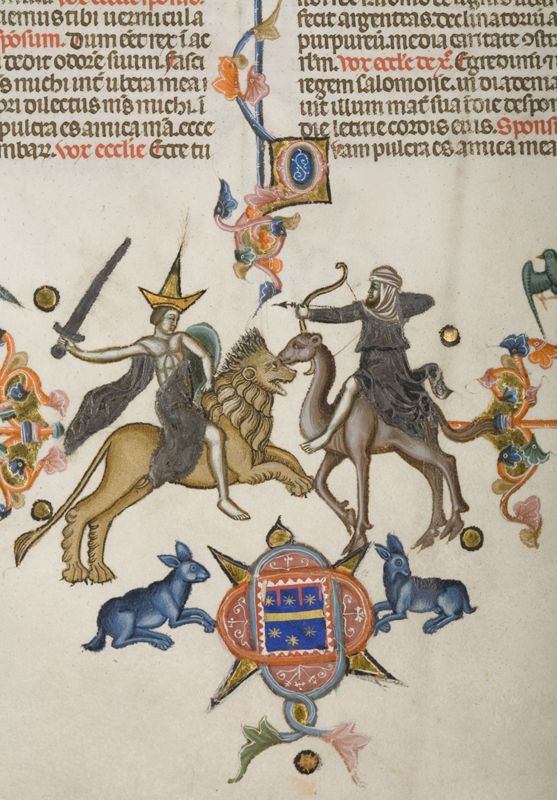 iemus stibi uermicula
sponsum. Dum eēt rex ī ac
dedit odorē suum. Fasci
s michi int̄ ubera mea ī
ori dilectus m̄s michi. ī
pulcra es amica m̄a. ecce
mbarr. vox ecclie Ecce tu
fecit argenteas. declinatoriū a
purpureū. media caritate ɔstr
rl̄m. vox eccle de x̄. Egredimī
regem salomone. in diadema
uit illum mat̄ sua ī die despon
die letitie cordis eius. Sponsi
Quam pulcra es amica mea